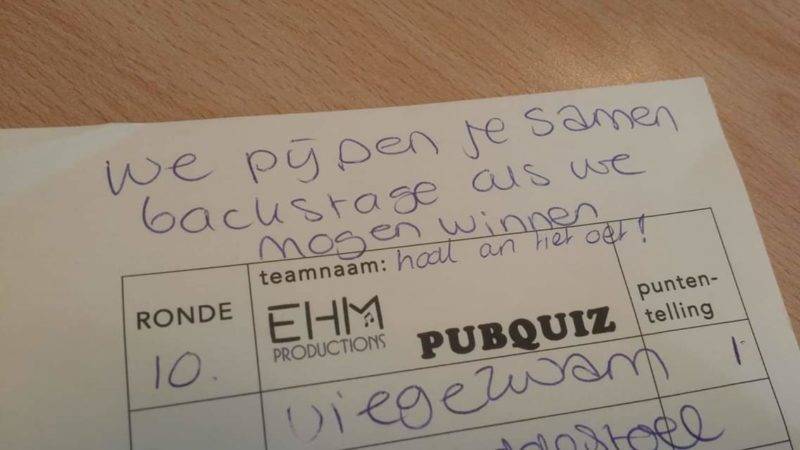 we pijpen je samen
backstage als we
mogen winnen
teamnaam: hodl an het oet!
RONDE
EHM
PRODUCTIONS
PUBQUIZ
punten-
telling
10.
Vliegezwam 1